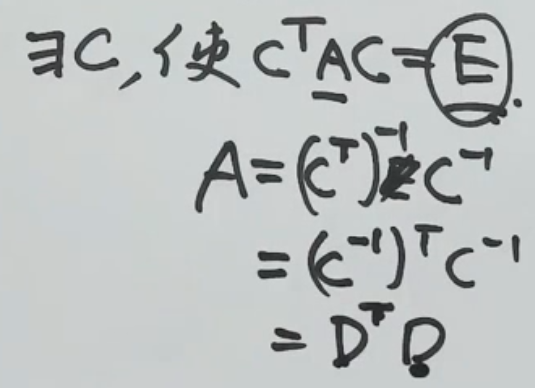 ∃C, 使 CᵀAC = E.
A = (Cᵀ)⁻¹ C⁻¹
= (C⁻¹)ᵀ C⁻¹
= DᵀD